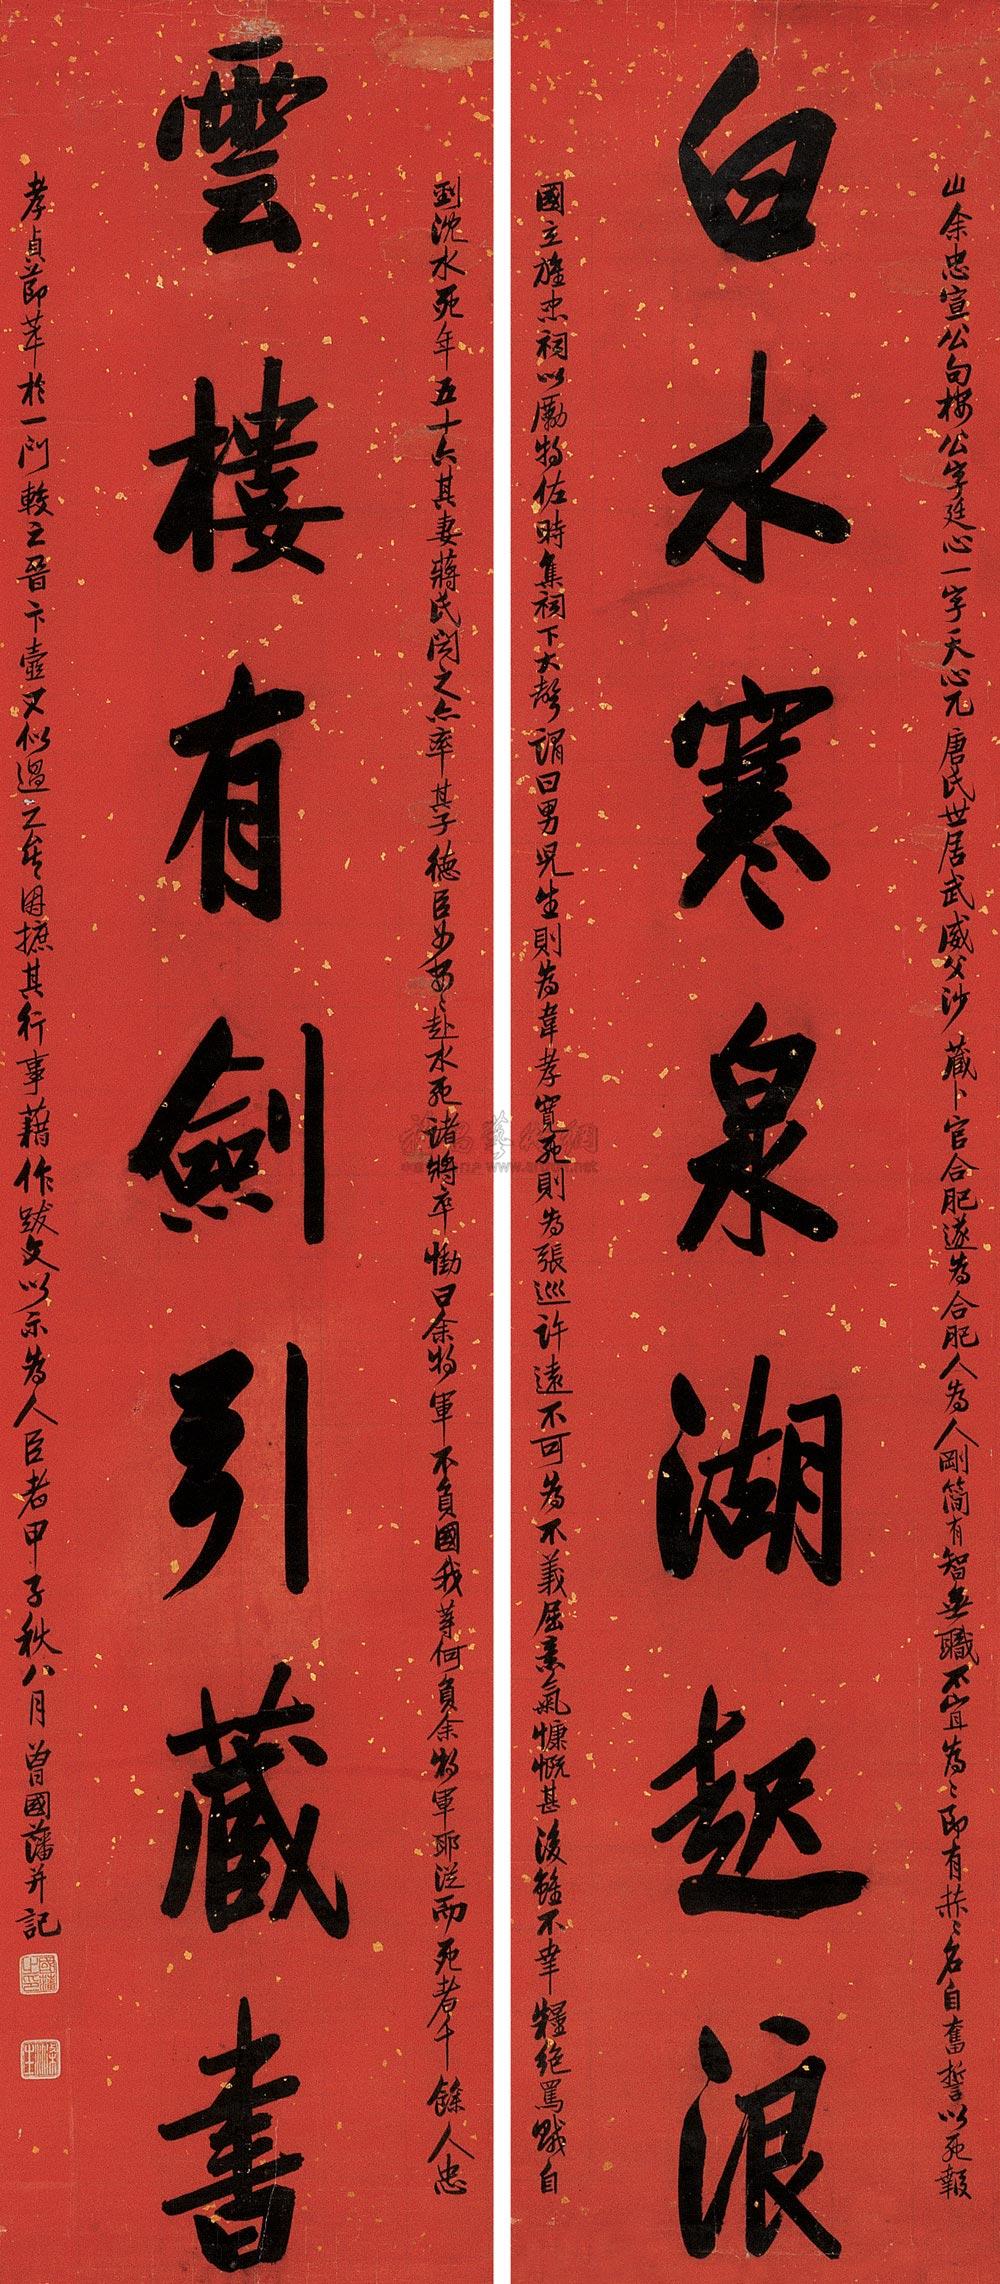 山余忠宣公句按公字廷心一字天心元唐氏世居武威父沙藏卜官合肥遂為合肥人為人剛簡有智無職不宜為〻即有赫〻名自奮誓以死報
白水寒泉湖起浪
國立旌忠祠以勵將佐時集祠下大聲謂曰男兒生則為韋孝寬死則為張巡許遠不可為不義屈意氣慷慨甚後雖不幸糧絕罵賊自
剄沈水死年五十六其妻蔣氏聞之亦率其子德臣女安〻赴水死諸將卒慟曰余將軍不負國我等何負余將軍耶從而死者千餘人忠
雲樓有劍引藏書
孝貞節萃於一門較之晉卞壼又似過之矣因摭其行事藉作跋文以示為人臣者甲子秋八月曾國藩并記